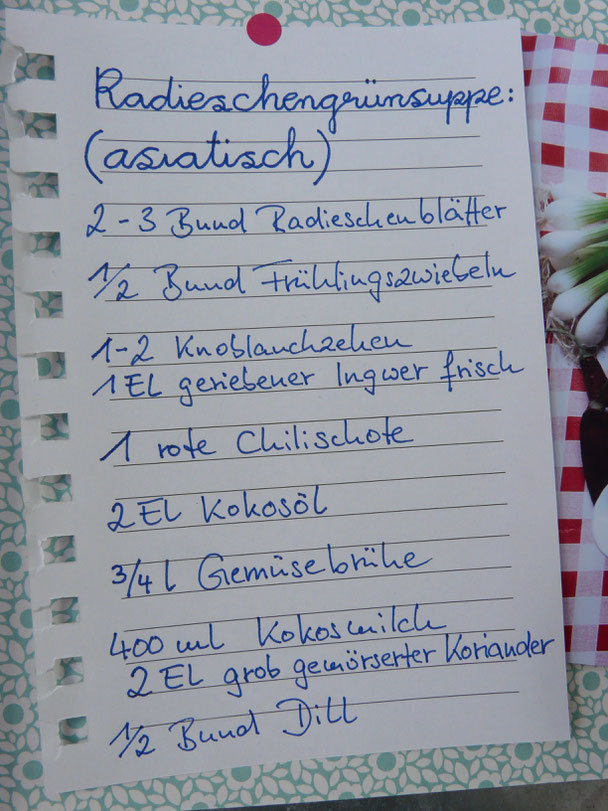 Radieschengrünsuppe:
(asiatisch)
2-3 Bund Radieschenblätter
1/2 Bund Frühlingszwiebeln
1-2 Knoblauchzehen
1 EL geriebener Ingwer frisch
1 rote Chilischote
2 EL Kokosöl
3/4 l Gemüsebrühe
400 ml Kokosmilch
2 EL grob gemörserter Koriander
1/2 Bund Dill